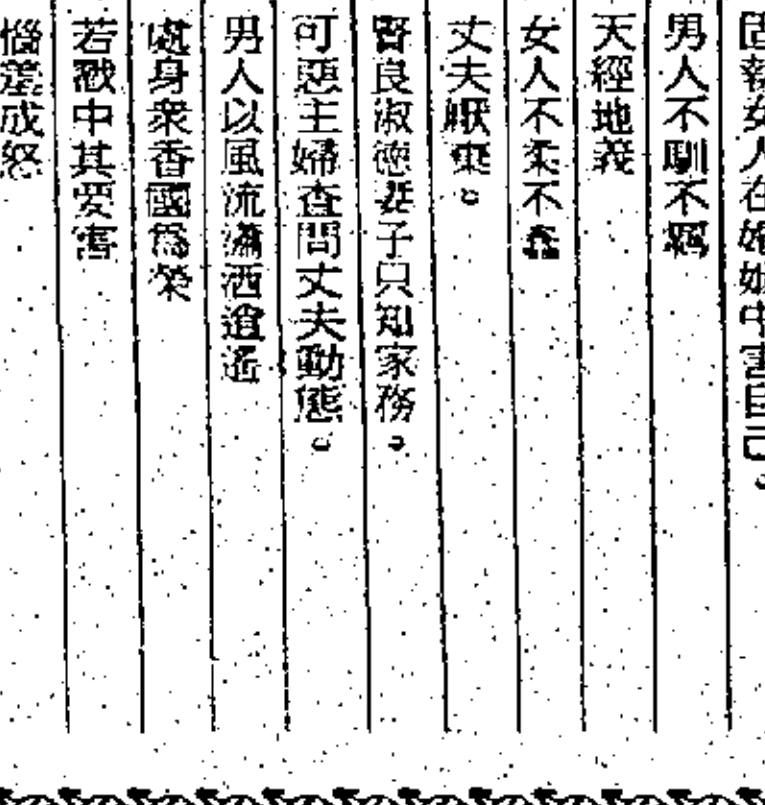 固執女人在婚姻中害自己。
男人不馴不羈
天經地義
女人不柔不
丈夫厭棄。
賢良淑德妻子只知家務。
可惡主婦查問丈夫動態。
男人以風流瀟洒逍遙
處身衆香國為榮
若戳中其要害
惱羞成怒